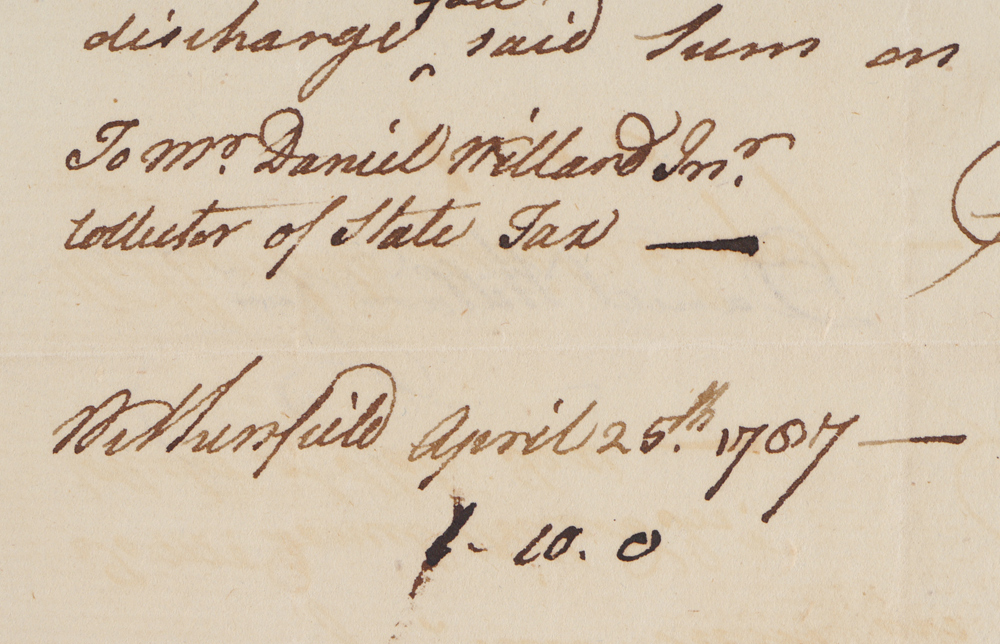 discharge said Sum on
To Mr. Daniel Willard Jnr.
Collector of State Tax —
Wethersfield April 25th. 1787 —
1- 10. 0